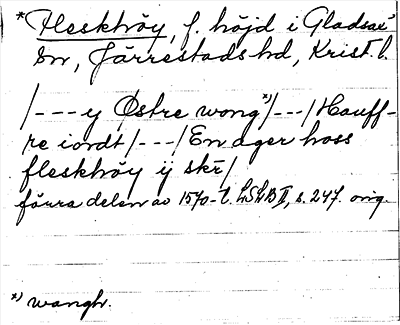 *Fleskhöy, f. höjd i Gladsax'
sn, Järrestads hd, Krist. l.
/---y Østre wong*)/---/Hauff-
re iordt/---/En ager hoss
fleskhöy ij skr/
förra delen av 1570-t. LSLB II, s. 247. orig.
*) wangh.